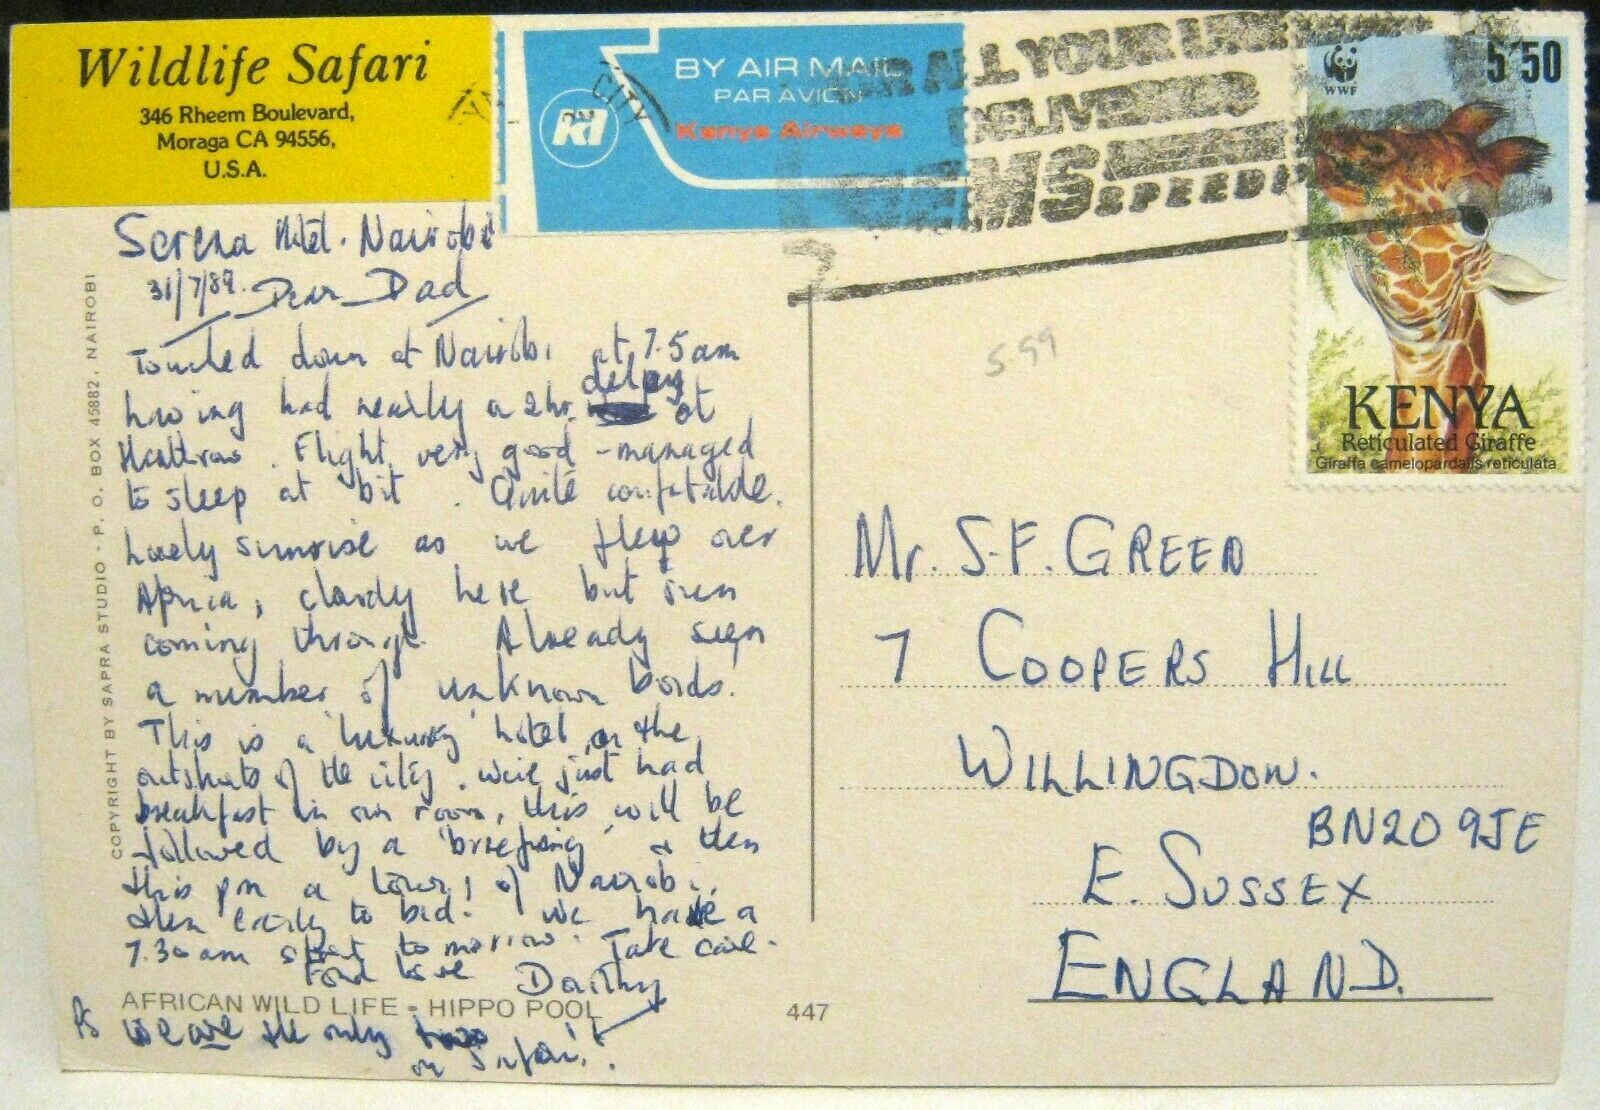 Wildlife Safari
346 Rheem Boulevard,
Moraga CA 94556,
U.S.A.
BY AIR MAIL
PAR AVION
Kenya Airways
CITY
ALL YOUR
EMS SPEED
WWF
5/50
KENYA
Reticulated Giraffe
Giraffa camelopardalis reticulata
5.99
Serena Hotel. Nairobi
31/7/89. Dear Dad
Touched down at Nairobi at 7.5am
having had nearly a 2hr. delay at
Heathrow. Flight very good - managed
to sleep a bit. Quite comfortable.
Lovely sunrise as we flew over
Africa, cloudy here but sun
coming through. Already seen
a number of unknown birds.
This is a 'luxury' hotel on the
outskirts of the city. We've just had
breakfast in our room, this will be
followed by a 'briefing' & then
this pm a tour of Nairobi,
then early to bed! We have a
7.30am start tomorrow. Take care.
Fond love Dorothy
AFRICAN WILD LIFE - HIPPO POOL
447
PS We are the only two
on Safari!
COPYRIGHT BY SAPRA STUDIO - P. O. BOX 45882, NAIROBI
Mr. S.F. GREEN
7 COOPERS HILL
WILLINGDON.
BN20 9JE
E. SUSSEX
ENGLAND.